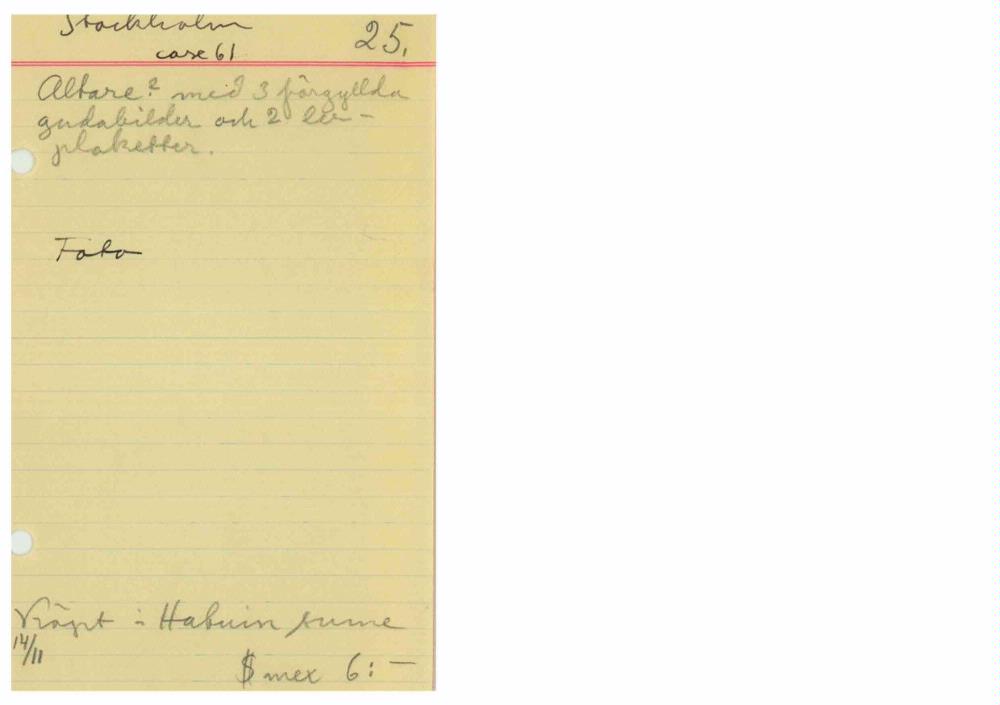 Stockholm
case 61
25.
Altare? med 3 förgyllda
gudabilder och 2 ler-
plaketter.
Foto
Köpt i Habuin sume
14/11
$ mex 6:-